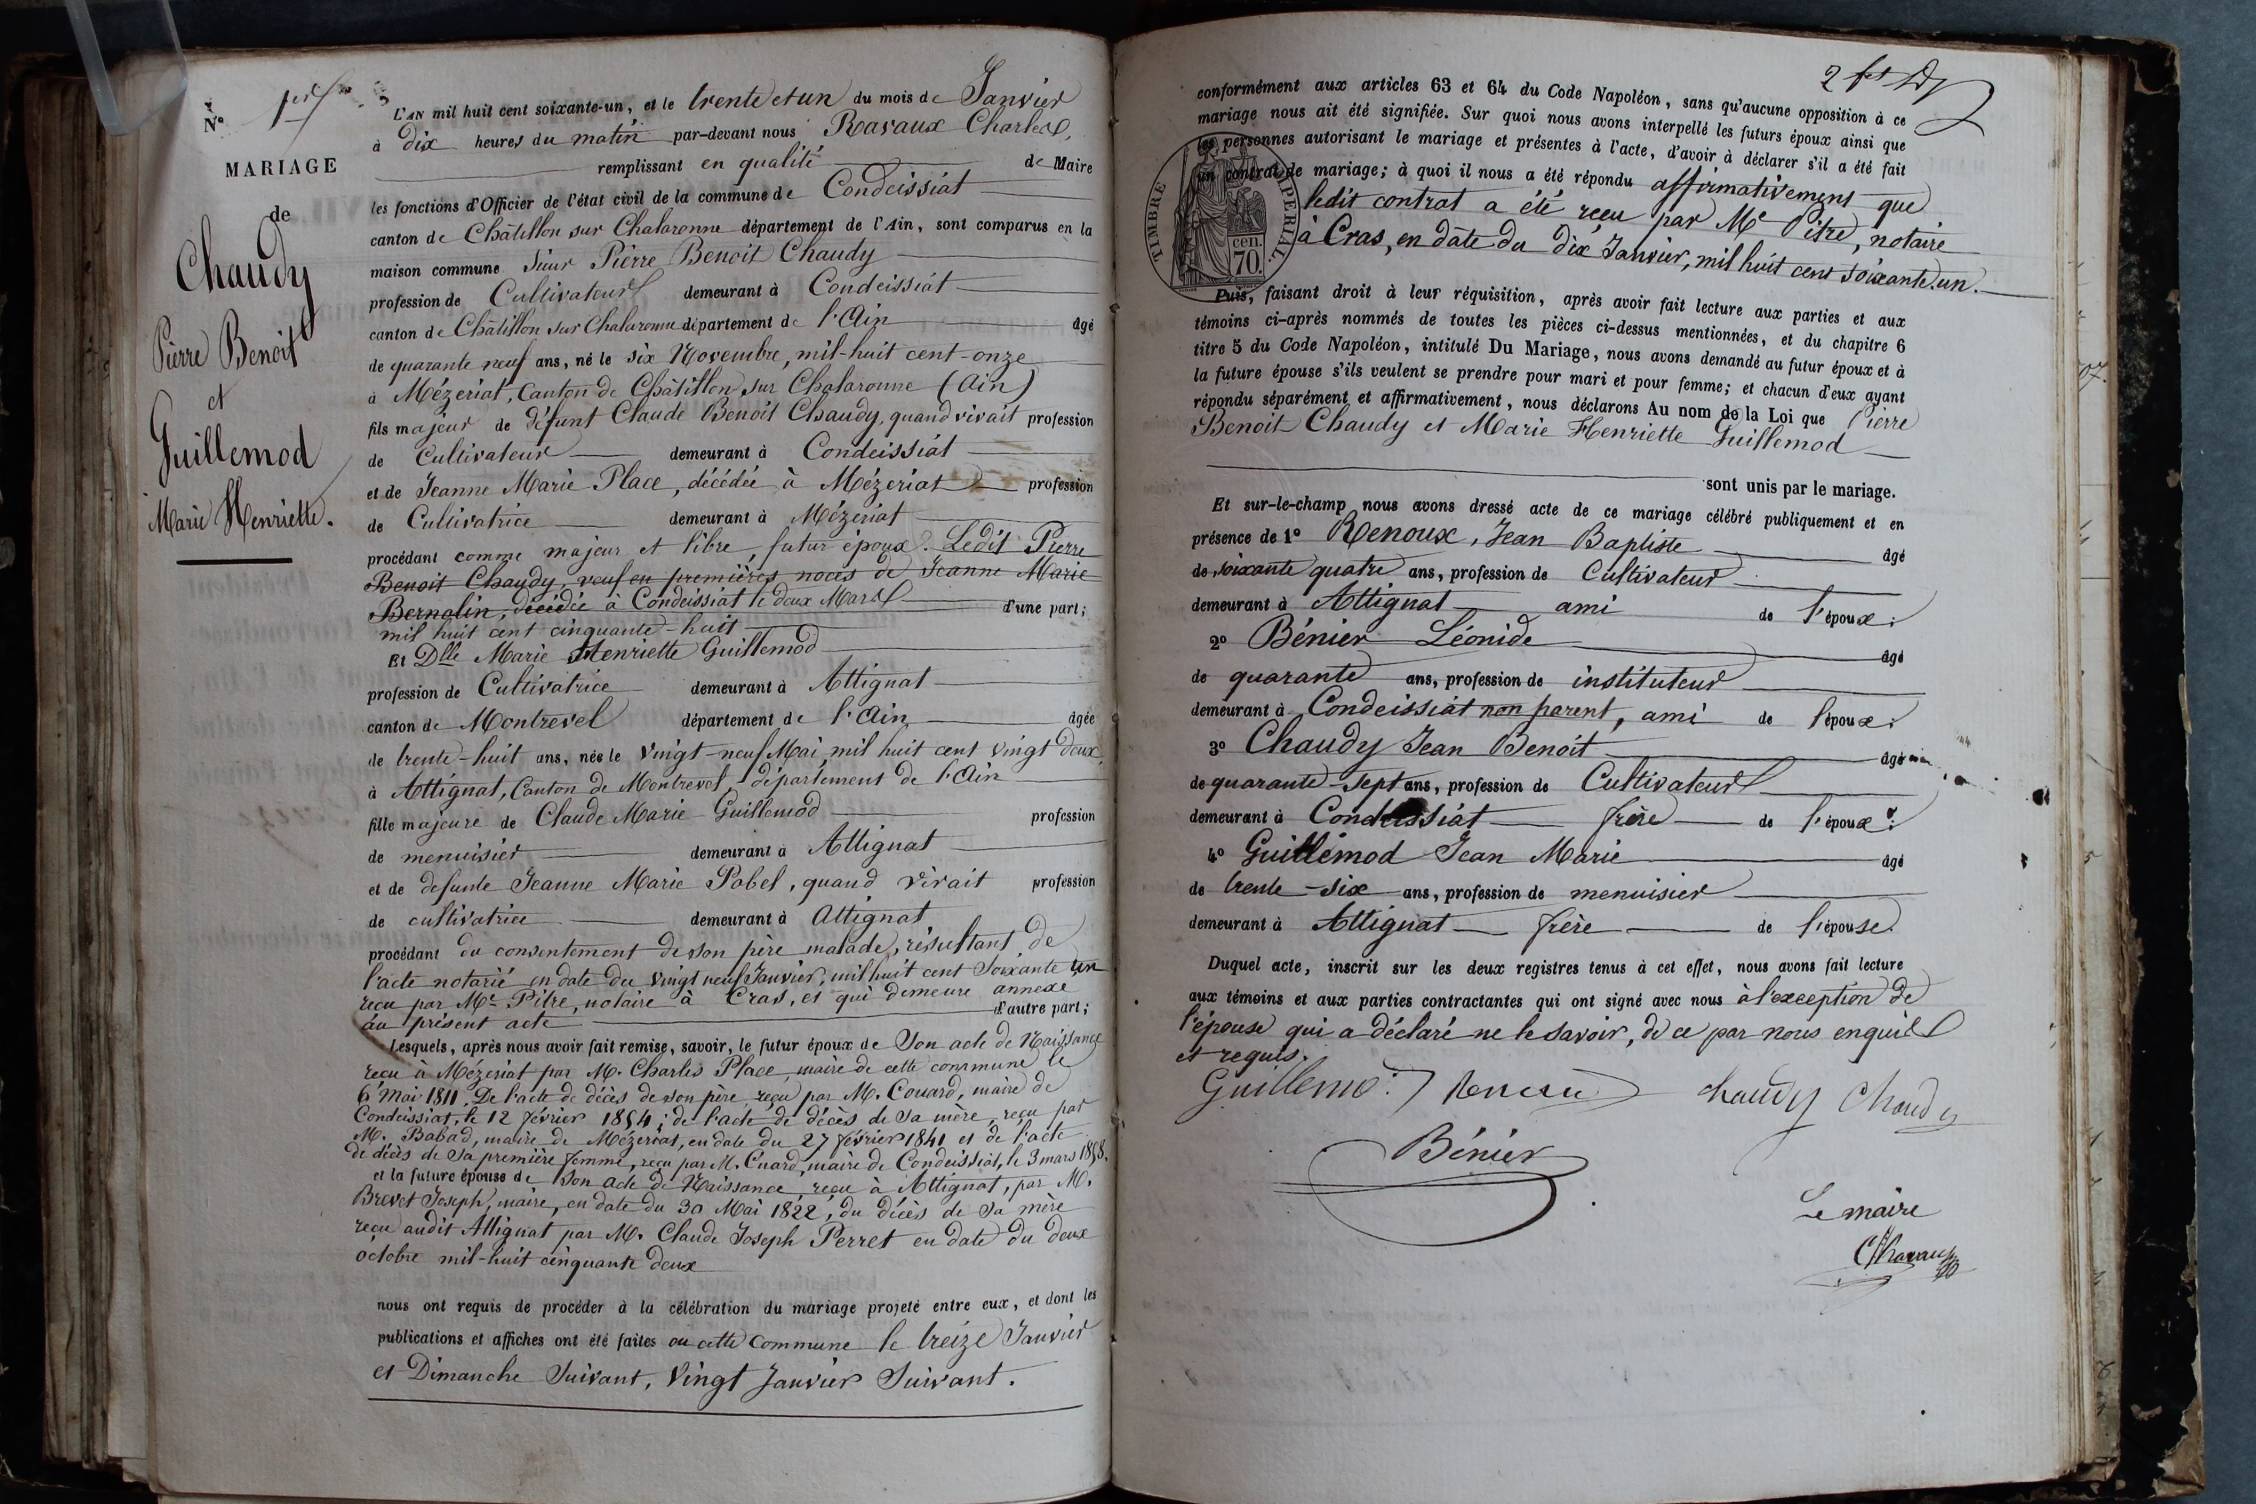 N° 1er
MARIAGE
de
Chaudy
Pierre Benoit
et
Guillemod
Marie Henriette.
L'AN mil huit cent soixante-un, et le trente et un du mois de Janvier
à dix heures du matin par-devant nous Ravaux Charles,
remplissant en qualité de Maire
les fonctions d'Officier de l'état civil de la commune de Condeissiat
canton de Châtillon sur Chalaronne département de l'Ain, sont comparus en la
maison commune Sieur Pierre Benoit Chaudy
profession de Cultivateur demeurant à Condeissiat
canton de Châtillon sur Chalaronne département de l'Ain âgé
de quarante neuf ans, né le six Novembre, mil-huit cent-onze
à Mézériat, Canton de Châtillon sur Chalaronne (Ain)
fils majeur de défunt Claude Benoit Chaudy, quand vivait profession
de Cultivateur demeurant à Condeissiat
et de Jeanne Marie Place, décédée à Mézériat profession
de Cultivatrice demeurant à Mézériat
procédant comme majeur et libre, futur époux. Ledit Pierre
Benoit Chaudy, veuf en premières noces de Jeanne Marie
Bernolin, décédée à Condeissiat le deux Mars d'une part;
mil huit cent cinquante-huit
Et Dlle Marie Henriette Guillemod
profession de Cultivatrice demeurant à Attignat
canton de Montrevel département de l'Ain âgée
de trente-huit ans, née le vingt-neuf Mai mil huit cent vingt deux,
à Attignat, Canton de Montrevel, département de l'Ain
fille majeure de Claude Marie Guillemod profession
de menuisier demeurant à Attignat
et de defunte Jeanne Marie Pobel, quand vivait profession
de cultivatrice demeurant à Attignat
procédant du consentement de son père malade, résultant de
l'acte notarié en date du vingt neuf Janvier, mil huit cent soixante un
reçu par Me Pitre, notaire à Cras, et qui demeure annexé
au présent acte d'autre part;
Lesquels, après nous avoir fait remise, savoir, le futur époux de Son acte de Naissance
reçu à Mézeriat par M. Charles Place, maire de cette commune le
6 Mai 1811. De l'acte de décès de son père, reçu par M. Couard, maire de
Condeissiat, le 12 février 1854; de l'acte de décès de sa mère, reçu par
M. Babad, maire de Mézériat, en date du 27 février 1841 et de l'acte
de décès de sa première femme, reçu par M. Cuard, maire de Condeissiat, le 3 mars 1858.
et la future épouse de Son acte de Naissance, reçu à Attignat, par M.
Brevet Joseph, maire, en date du 30 Mai 1822, du décès de sa mère
reçu audit Attignat par M. Claude Joseph Perret en date du deux
octobre mil-huit cinquante deux
nous ont requis de procéder à la célébration du mariage projeté entre eux, et dont les
publications et affiches ont été faites en cette Commune le treize Janvier
et Dimanche Suivant, vingt Janvier Suivant.
conformément aux articles 63 et 64 du Code Napoléon, sans qu'aucune opposition à ce
mariage nous ait été signifiée. Sur quoi nous avons interpellé les futurs époux ainsi que
les personnes autorisant le mariage et présentes à l'acte, d'avoir à déclarer s'il a été fait
un contrat de mariage; à quoi il nous a été répondu affirmativement que
ledit contrat a été reçu par Me Pitre, notaire
à Cras, en date du dix Janvier, mil huit cent soixante-un.
TIMBRE IMPÉRIAL
70 cen.
Puis, faisant droit à leur réquisition, après avoir fait lecture aux parties et aux
témoins ci-après nommés de toutes les pièces ci-dessus mentionnées, et du chapitre 6
titre 5 du Code Napoléon, intitulé Du Mariage, nous avons demandé au futur époux et à
la future épouse s'ils veulent se prendre pour mari et pour femme; et chacun d'eux ayant
répondu séparément et affirmativement, nous déclarons Au nom de la Loi que Pierre
Benoit Chaudy et Marie Henriette Guillemod
sont unis par le mariage.
Et sur-le-champ nous avons dressé acte de ce mariage célébré publiquement et en
présence de 1° Renoux, Jean Baptiste âgé
de soixante quatre ans, profession de Cultivateur
demeurant à Attignat ami de l'époux;
2° Bénier Léonide âgé
de quarante ans, profession de instituteur
demeurant à Condeissiat non parent, ami de l'époux;
3° Chaudy Jean Benoit âgé
de quarante-sept ans, profession de Cultivateur
demeurant à Condeissiat frère de l'époux;
4° Guillemod Jean Marie âgé
de trente-six ans, profession de menuisier
demeurant à Attignat frère de l'épouse.
Duquel acte, inscrit sur les deux registres tenus à cet effet, nous avons fait lecture
aux témoins et aux parties contractantes qui ont signé avec nous à l'exception de
l'épouse qui a déclaré ne le savoir, de ce par nous enquis
et requis.
Guillemo Renoux chaudy Chaudy
Bénier
Le maire
Ch Ravaux